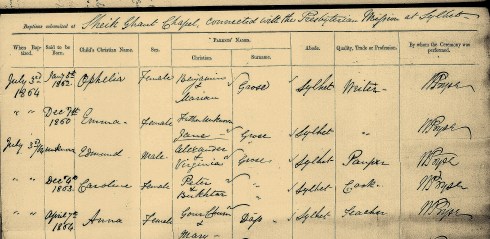 Baptisms solemnized at Sheik Ghaut Chapel, connected with the Presbyterian Mission at Sylhet
When Baptized. Said to be Born. Child's Christian Name. Sex. Parents' Names. Abode. Quality, Trade or Profession. By whom the Ceremony was performed.
Christian. Surname.
July 3rd 1864 Jany 8th 1862 Ophelia Female Benjamin & Marian Gosse Sylhet Writer W Pryse
" " Decr 7th 1860 Emma Female Father unknown Jane Gosse Sylhet " W Pryse
July 3rd unknown Edmund Male Alexander & Virginia Gosse Sylhet Pauper W Pryse
" " Decr 4th 1863 Caroline Female Peter & " Sylhet Cook W Pryse
" " April 7th 1864 Anna Female & Mary Dass Sylhet Teacher W Pryse